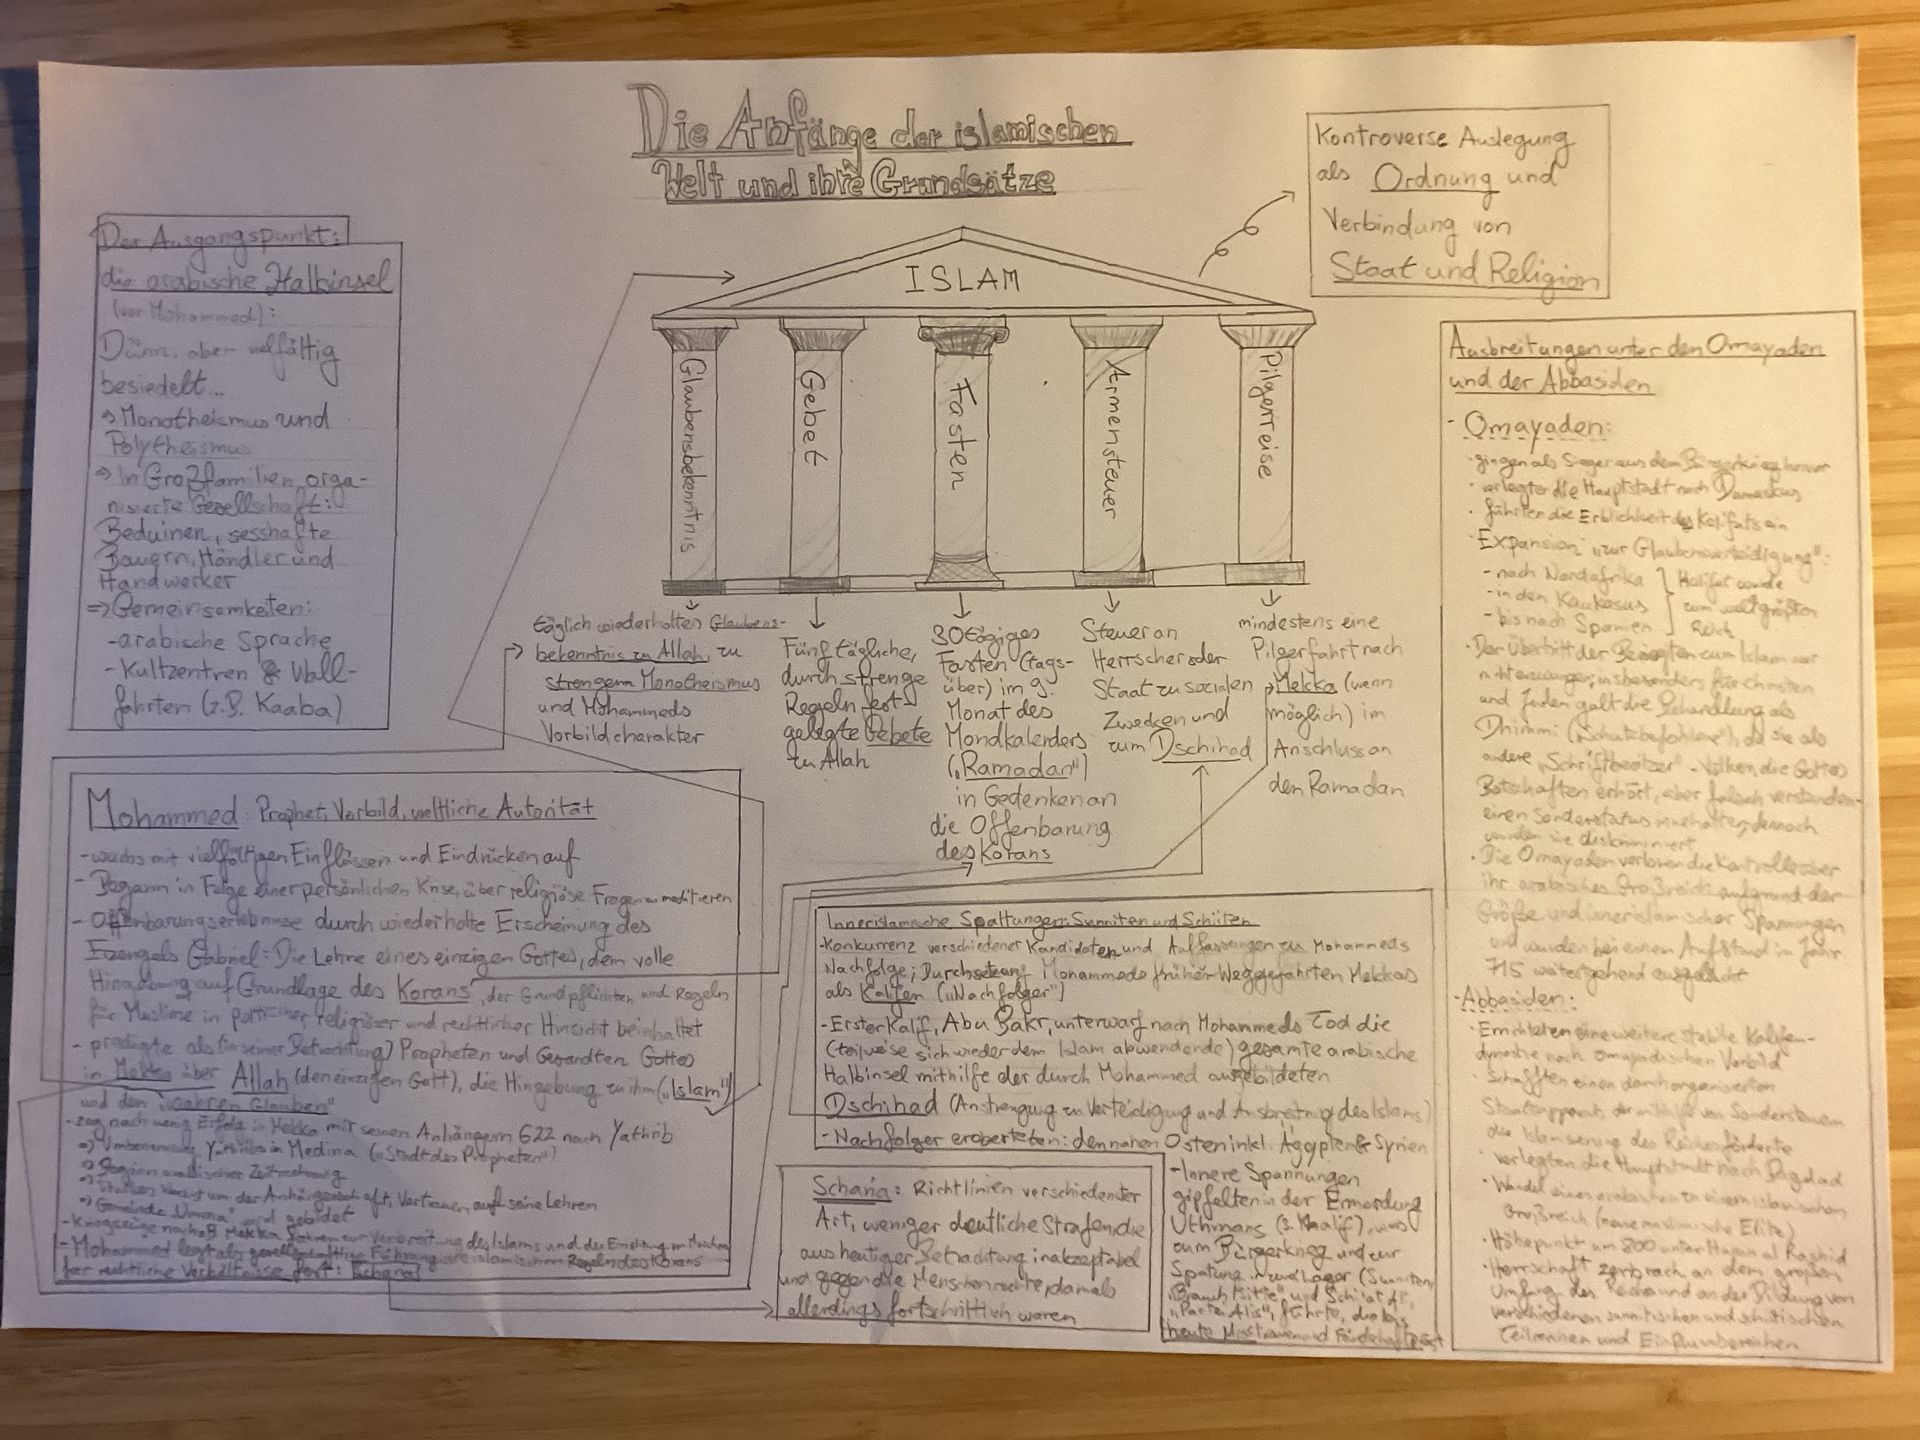 Die Anfänge der islamischen
Welt und ihre Grundsätze
Kontroverse Auslegung
als Ordnung und
Verbindung von
Staat und Religion
Der Ausgangspunkt:
die arabische Halbinsel
(vor Mohammed):
Dünn, aber vielfältig
besiedelt...
⇒ Monotheismus und
Polytheismus
⇒ In Großfamilien orga-
nisierte Gesellschaft:
Beduinen, sesshafte
Bauern, Händler und
Handwerker
⇒ Gemeinsamkeiten:
- arabische Sprache
- Kultzentren & Wall-
fahrten (z.B. Kaaba)
ISLAM
Glaubensbekenntnis
Gebet
Fasten
Armensteuer
Pilgerreise
täglich wiederholtes Glaubens-
bekenntnis zu Allah, zu
strengem Monotheismus
und Mohammeds
Vorbildcharakter
Fünf tägliche,
durch strenge
Regeln fest-
gelegte Gebete
zu Allah
30tägiges
Fasten (tags-
über) im 9.
Monat des
Mondkalenders
("Ramadan")
in Gedenken an
die Offenbarung
des Korans
Steuer an
Herrscher oder
Staat zu sozialen
Zwecken und
zum Dschihad
mindestens eine
Pilgerfahrt nach
Mekka (wenn
möglich) im
Anschluss an
den Ramadan
Mohammed: Prophet, Vorbild, weltliche Autorität
- wuchs mit vielfältigen Einflüssen und Eindrücken auf
- Begann in Folge einer persönlichen Krise, über religiöse Fragen zu meditieren
- Offenbarungserlebnisse durch wiederholte Erscheinung des
Erzengels Gabriel: Die Lehre eines einzigen Gottes, dem volle
Hingebung auf Grundlage des Korans, der Grundpflichten und Regeln
für Muslime in politischer, religiöser und rechtlicher Hinsicht beinhaltet
- predigte als (in seiner Betrachtung) Propheten und Gesandten Gottes
in Mekka über Allah (den einzigen Gott), die Hingebung zu ihm ("Islam")
und den "wahren Glauben"
- zog nach wenig Erfolg in Mekka mit seinen Anhängern 622 nach Yathrib
⇒ Umbenennung Yathribs in Medina ("Stadt des Propheten")
⇒ Beginn arabischer Zeitrechnung
⇒ Starkes Wachstum der Anhängerschaft, Vertrauen auf seine Lehren
⇒ Gemeinde "Umma" wird gebildet
- Kriegszüge nach Mekka führen zur Verbreitung des Islams und der
- Mohammed legt als gesellschaftliche Führung Regeln des Korans
für rechtliche Verhältnisse fest: Scharia
Innerislamische Spaltungen: Sunniten und Schiiten
- Konkurrenz verschiedener Kandidaten und Auffassungen zu Mohammeds
Nachfolge; Durchsetzung Mohammeds früher Weggefährten Mekkas
als Kalifen ("Nachfolger")
- Erster Kalif, Abu Bakr, unterwarf nach Mohammeds Tod die
(teilweise sich wieder dem Islam abwendende) gesamte arabische
Halbinsel mithilfe der durch Mohammed ausgebildeten
Dschihad (Anstrengung zu Verteidigung und Ausbreitung des Islams)
- Nachfolger eroberten: den nahen Osten inkl. Ägypten & Syrien
- Innere Spannungen
gipfelten in der Ermordung
Uthmans (3. Khalif), was
zum Bürgerkrieg und zur
Spaltung in zwei Lager (Sunniten,
und Schi'at Ali,
"Partei Alis", führte, die bis
heute Misstrauen und
Scharia: Richtlinien verschiedenster
Art, weniger deutliche Strafen, die
aus heutiger Betrachtung inakzeptabel
und gegen die Menschenrechte, damals
allerdings fortschrittlich waren
Ausbreitungen unter den Omayaden
und der Abbasiden
- Omayaden:
· gingen als Sieger aus dem Bürgerkrieg hervor
· verlegten die Hauptstadt nach Damaskus
· führten die Erblichkeit des Kalifats ein
· Expansion "zur Glaubensverteidigung":
- nach Nordafrika
- in den Kaukasus
- bis nach Spanien
Kalifat wurde
zum weltgrößten
Reich
· Der Übertritt der Besiegten zum Islam war
nicht erzwungen; insbesonders für Christen
und Juden galt die Behandlung als
Dhimmi ("Schutzbefohlene"), da sie als
andere "Schriftbesitzer" - Völker, die Gottes
Botschaften erhört, aber falsch verstanden -
einen Sonderstatus innehalten; dennoch
wurden sie diskriminiert
· Die Omayaden verloren die Kontrolle über
ihr arabisches Großreich aufgrund der
Größe und innerislamischer Spannungen
und wurden bei einem Aufstand im Jahr
715 weitergehend ausgelöscht
- Abbasiden:
· Errichteten eine weitere stabile Kalifen-
dynastie nach omayadischem Vorbild
· Schafften einen durchorganisierten
Staatsapparat, der mithilfe von Sondersteuern
die Islamisierung des Reiches förderte
· verlegten die Hauptstadt nach Bagdad
· Wandel eines arabischen zu einem islamischen
Großreich (neue muslimische Elite)
· Höhepunkt um 800 unter Harun al Rashid
· Herrschaft zerbrach an dem großen
Umfang des Reichs und an der Bildung von
verschiedenen sunnitischen und schiitischen
Teilreichen und Einflussbereichen